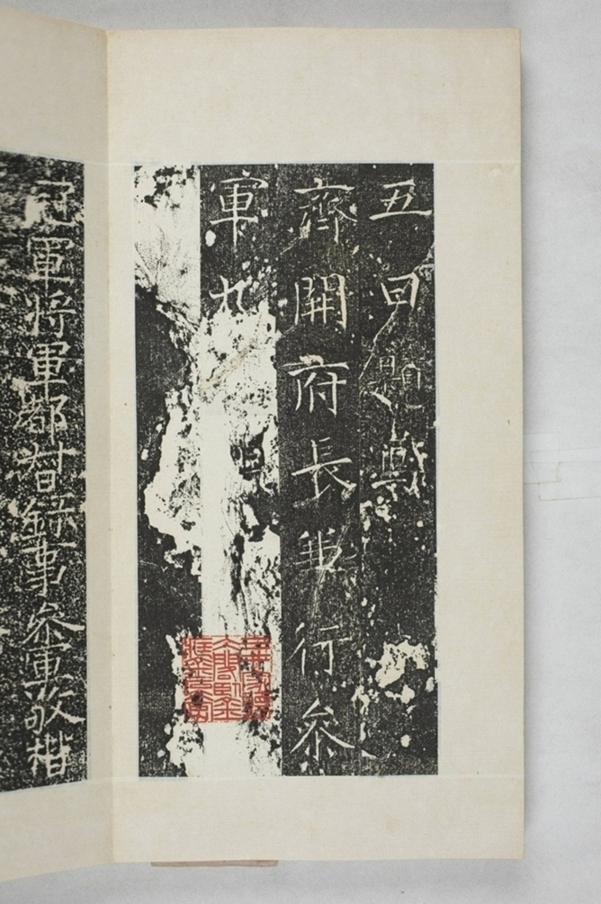 五日題
齊開府長兼行參
軍九
冠軍將軍都督錄事參軍敬楷